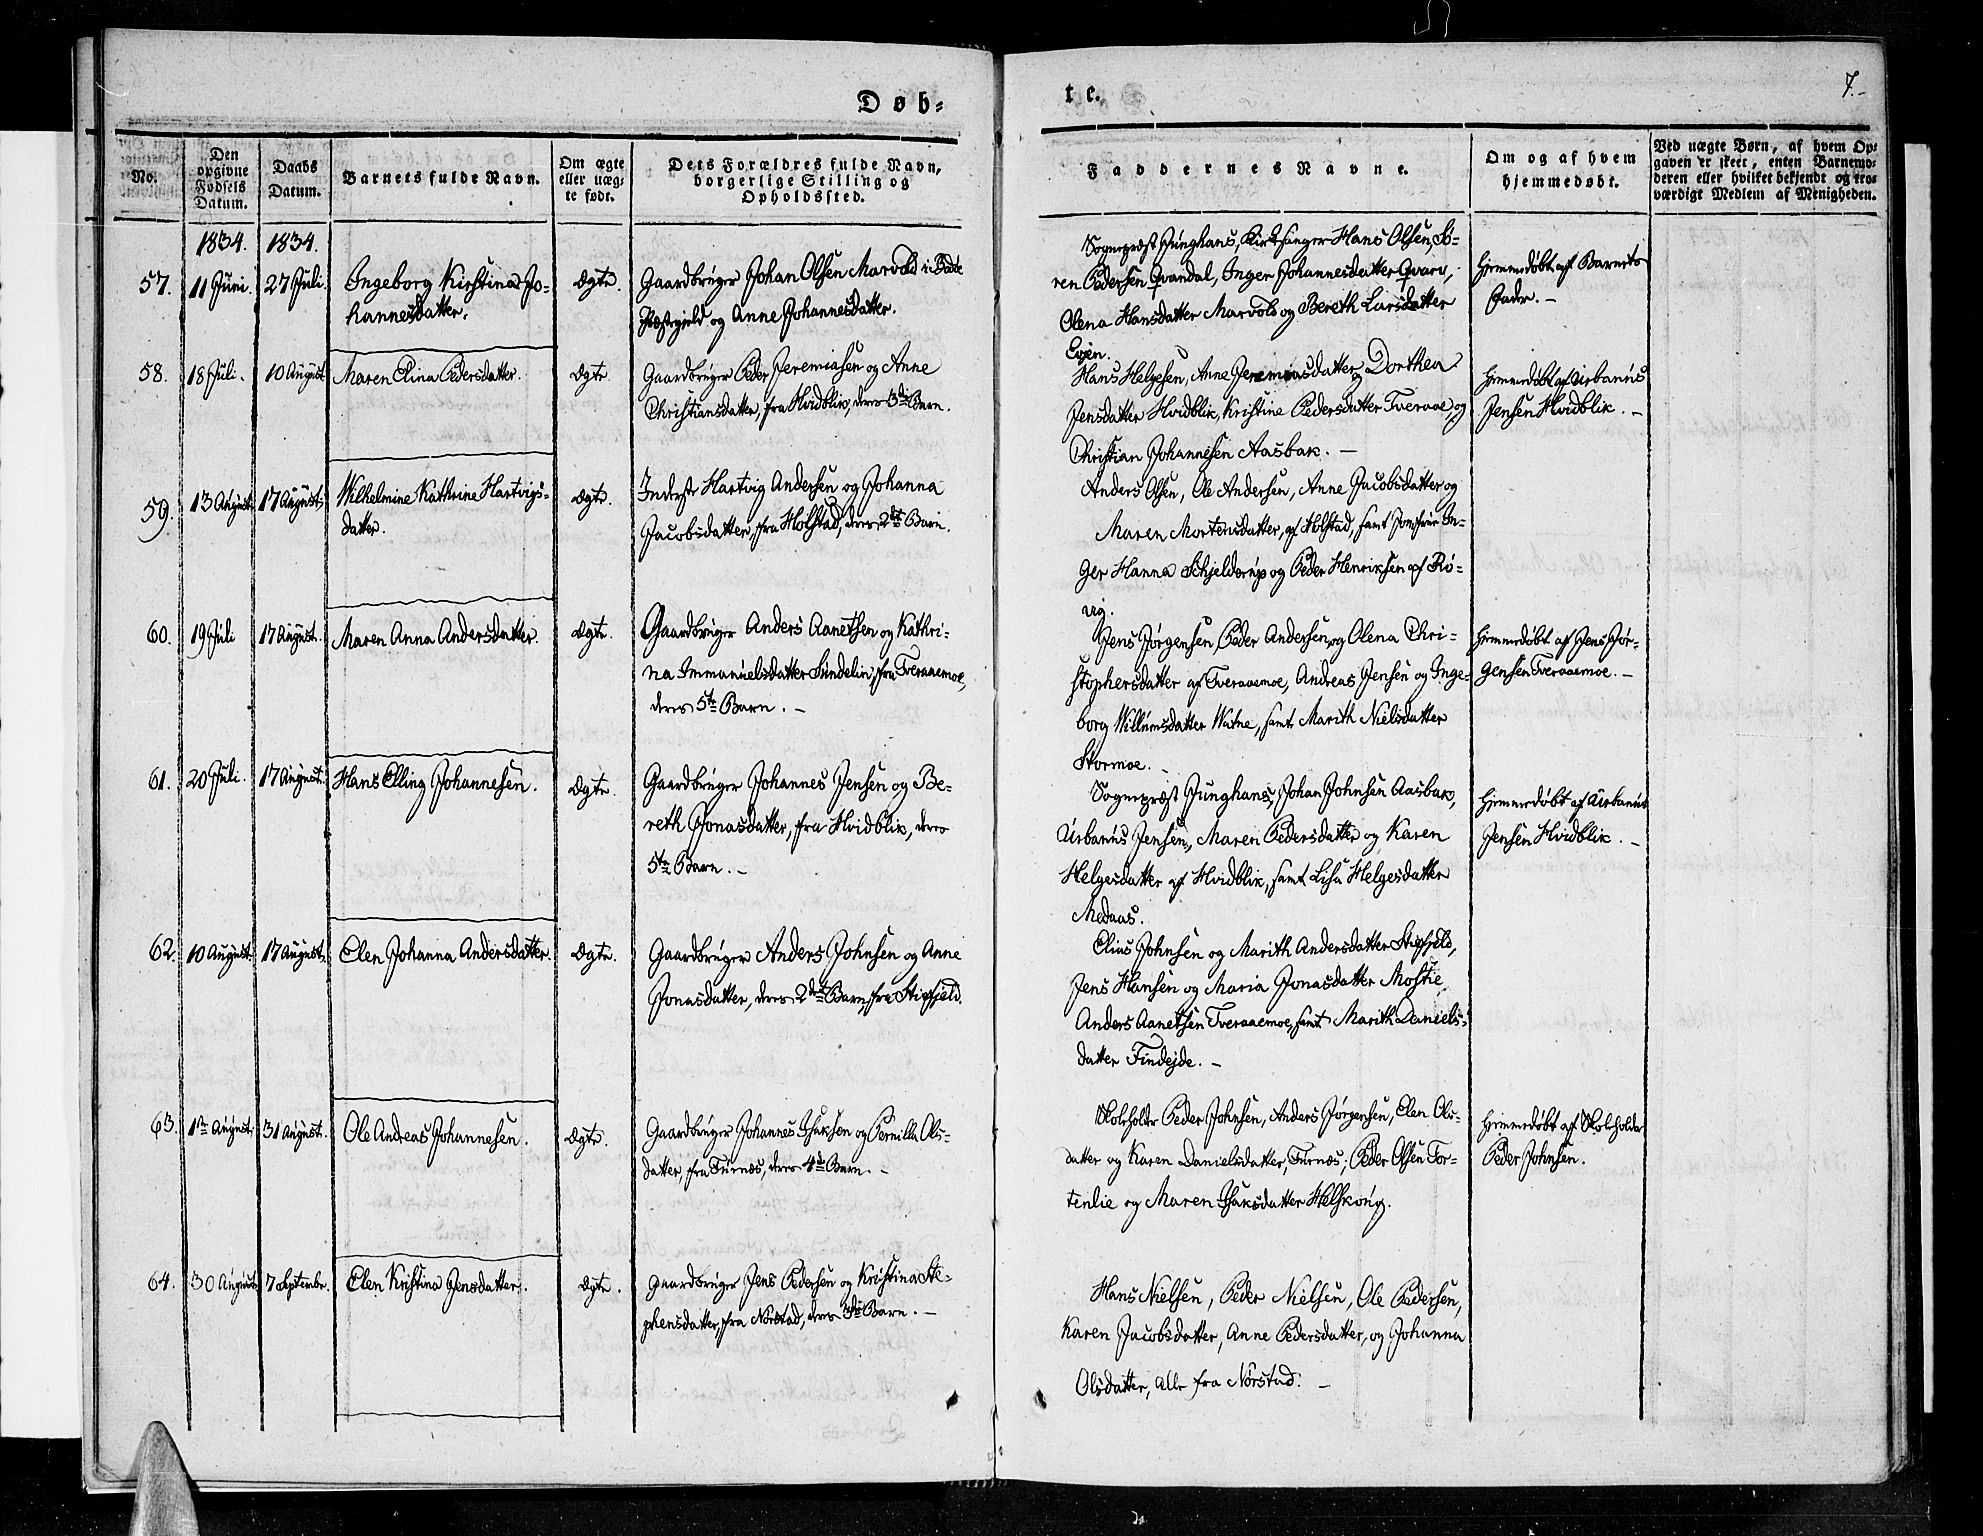 Døb-
No.
Den
opgivne
Fødsels
Datum.
Daabs
Datum.
Barnets fulde Navn.
Om ægte
eller uæg-
te født.
Dets Forældres fulde Navn,
borgerlige Stilling og
Opholdssted.
1834. 1834.
57. 11 Juni. 27 Juli. Ingeborg Kirstina Jo-
hannesdatter.
Ægte.
Gaardbruger Johan Olsen Marvold i Bodø
Præstegjeld og Anne Johannesdatter.
58. 18 Juli. 10 August Maren Elina Pedersdatter.
Ægte.
Gaardbruger Peder Jeremiasen og Anne
Christiansdatter, fra Hvidblik, deres 3die Barn.
59. 13 August. 17 August. Wilhelmine Kathrine Hartvigs-
datter.
Ægte.
Inderst Hartvig Andersen og Johanna
Jacobsdatter, fra Holstad, deres 2det Barn.
60. 19 Juli 17 August. Maren Anna Andersdatter.
Ægte.
Gaardbruger Anders Aanetsen og Kathri-
na Immanuelsdatter Sundelin, fra Tveraaemoe,
deres 5te Barn. –
61. 20 Juli. 17 August. Hans Elling Johannesen.
Ægte.
Gaardbruger Johannes Jensen og Be-
reth Jonasdatter, fra Hvidblik, deres
5te Barn. –
62. 10 August. 17 August. Elen Johanna Andersdatter.
Ægte.
Gaardbruger Anders Johnsen og Anne
Jonasdatter, deres 2det Barn, fra Stipfjeld.
63. 1ste August. 31 August. Ole Andreas Johannesen.
Ægte.
Gaardbruger Johannes Isaksen og Pernilla Ols-
datter, fra Furnes, deres 4de Barn. –
64. 30 August 7 Septembr. Elen Kristina Jensdatter.
Ægte.
Gaardbruger Jens Pedersen og Kristina Ste-
phensdatter, fra Nørstad, deres 3die Barn. –
te.
7.-
Faddernes Navne.
Om og af hvem
hjemmedøbt.
Ved uægte Børn, af hvem Op-
gaven er skeet, enten Barnemo-
deren eller hvilket bekjendt og tro-
værdigt Medlem af Menigheden.
Sognepræst Junghans, Kirkesanger Hans Olsen, Sø-
ren Pedersen Qvandal, Inger Johannesdatter Qvarv,
Olena Hansdatter Marvold og Bereth Larsdatter
Evjen.
Hjemmedøbt af Barnets
Fader. –
Hans Helgesen, Anne Jeremiasdatter og Dorthea
Jensdatter Hvidblik, Kristine Pedersdatter Tveraae, og
Christian Johannesen Aasbak. –
Hjemmedøbt af Urbanus
Jensen Hvidblik. –
Anders Olsen, Ole Andersen, Anne Jacobsdatter og
Maren Mortensdatter, af Holstad, samt Jomfrue In-
ger Hanna Schjelderup og Peder Henriksen af Rø-
vig.
Jens Jørgensen, Peder Andersen, og Olena Chri-
stophersdatter af Tveraaemoe, Andreas Jensen og Inge-
borg Willumsdatter Watne, samt Marith Nielsdatter
Stormoe. –
Hjemmedøbt af Jens Jør-
gensen Tveraaemoe. –
Sognepræst Junghans, Johan Johnsen Aasbak,
Urbanus Jensen, Maren Pedersdatter og Karen
Helgesdatter af Hvidblik, samt Lisa Helgesdatter
Medaas.
Hjemmedøbt af Urbanus
Jensen Hvidblik. –
Elias Johnsen og Marith Andersdatter Stipfjeld,
Jens Hansen og Maria Jonasdatter Mostie,
Anders Aanetsen Tveraaemoe, samt Marith Daniels-
datter Findejde. –
Skoleholder Peder Johnsen, Anders Jørgensen, Elen Ols-
datter og Karen Danielsdatter, Furnes; Peder Olsen Tor-
tenlie og Maren Isaksdatter Helskoug.
Hjemmedøbt af Skoleholder
Peder Johnsen.
Hans Nielsen, Peder Nielsen, Ole Pedersen,
Karen Jacobsdatter, Anne Pedersdatter, og Johanna
Olsdatter, alle fra Nørstad. –